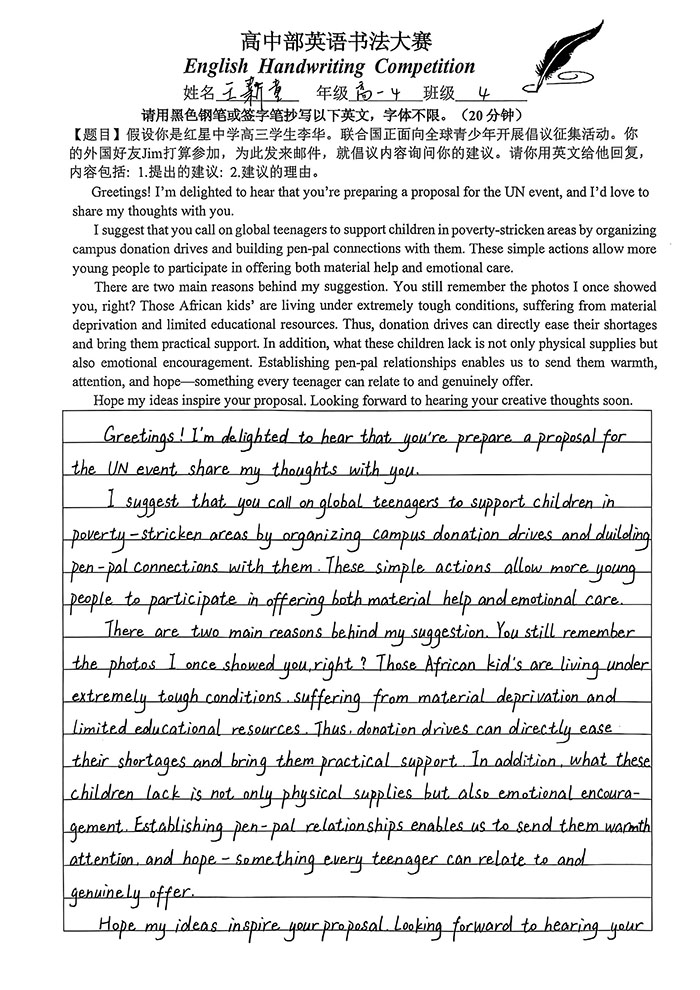 高中部英语书法大赛
English Handwriting Competition
姓名 王新童 年级 高一4 班级 4
请用黑色钢笔或签字笔抄写以下英文，字体不限。（20 分钟）
【题目】假设你是红星中学高三学生李华。联合国正面向全球青少年开展倡议征集活动。你
的外国好友Jim打算参加，为此发来邮件，就倡议内容询问你的建议。请你用英文给他回复，
内容包括：1.提出的建议：2.建议的理由。
Greetings! I'm delighted to hear that you're preparing a proposal for the UN event, and I'd love to
share my thoughts with you.
I suggest that you call on global teenagers to support children in poverty-stricken areas by organizing
campus donation drives and building pen-pal connections with them. These simple actions allow more
young people to participate in offering both material help and emotional care.
There are two main reasons behind my suggestion. You still remember the photos I once showed
you, right? Those African kids' are living under extremely tough conditions, suffering from material
deprivation and limited educational resources. Thus, donation drives can directly ease their shortages
and bring them practical support. In addition, what these children lack is not only physical supplies but
also emotional encouragement. Establishing pen-pal relationships enables us to send them warmth,
attention, and hope—something every teenager can relate to and genuinely offer.
Hope my ideas inspire your proposal. Looking forward to hearing your creative thoughts soon.
Greetings! I'm delighted to hear that you're prepare a proposal for
the UN event share my thoughts with you.
I suggest that you call on global teenagers to support children in
poverty-stricken areas by organizing campus donation drives and duilding
pen-pal connections with them. These simple actions allow more young
people to participate in offering both material help and emotional care.
There are two main reasons behind my suggestion. You still remember
the photos I once showed you, right? Those African kid's are living under
extremely tough conditions, suffering from material deprivation and
limited educational resources. Thus, donation drives can directly ease
their shortages and bring them practical support. In addition, what these
children lack is not only physical supplies but also emotional encoura-
gement. Establishing pen-pal relationships enables us to send them warmth
attention, and hope-something every teenager can relate to and
genuinely offer.
Hope my ideas inspire your proposal. Looking forward to hearing your